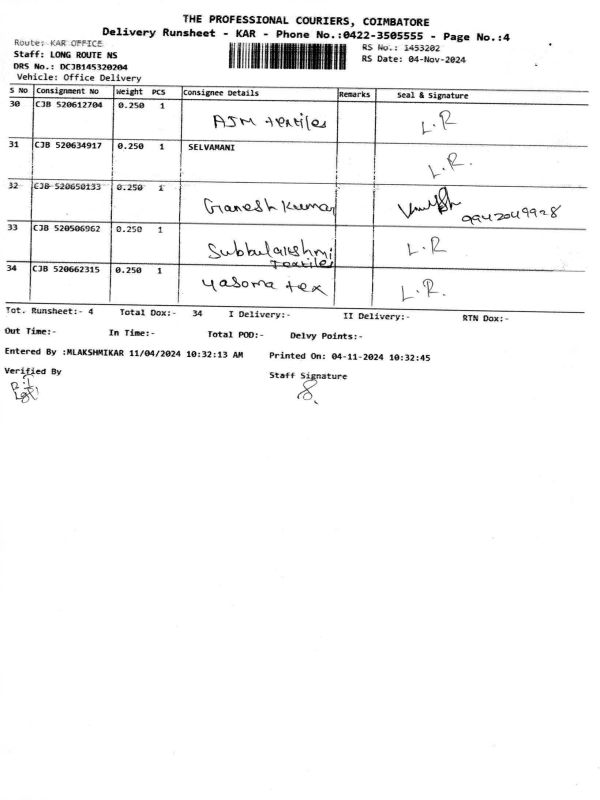 THE PROFESSIONAL COURIERS, COIMBATORE
Delivery Runsheet - KAR - Phone No.:0422-3505555 - Page No.:4
Route: KAR OFFICE
RS No.: 1453202
Staff: LONG ROUTE NS
RS Date: 04-Nov-2024
DRS No.: DCJB145320204
Vehicle: Office Delivery
S No Consignment No Weight PCS Consignee Details Remarks Seal & Signature
30 CJB 520612704 0.250 1 AJM textiles L.R
31 CJB 520634917 0.250 1 SELVAMANI L.R.
32 CJB 520650133 0.250 1 Ganesh Kumar 9942049928
33 CJB 520506962 0.250 1 Subbulakshmi textiles L.R
34 CJB 520662315 0.250 1 yasoma tex L.R.
Tot. Runsheet:- 4 Total Dox:- 34 I Delivery:- II Delivery:- RTN Dox:-
Out Time:- In Time:- Total POD:- Delvy Points:-
Entered By :MLAKSHMIKAR 11/04/2024 10:32:13 AM Printed On: 04-11-2024 10:32:45
Verified By
Staff Signature